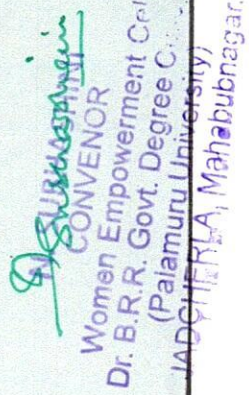 CONVENOR
Women Empowerment Cel
Dr. B.R.R. Govt. Degree C
(Palamuru University)
JADCHERLA, Mahabubnagar.